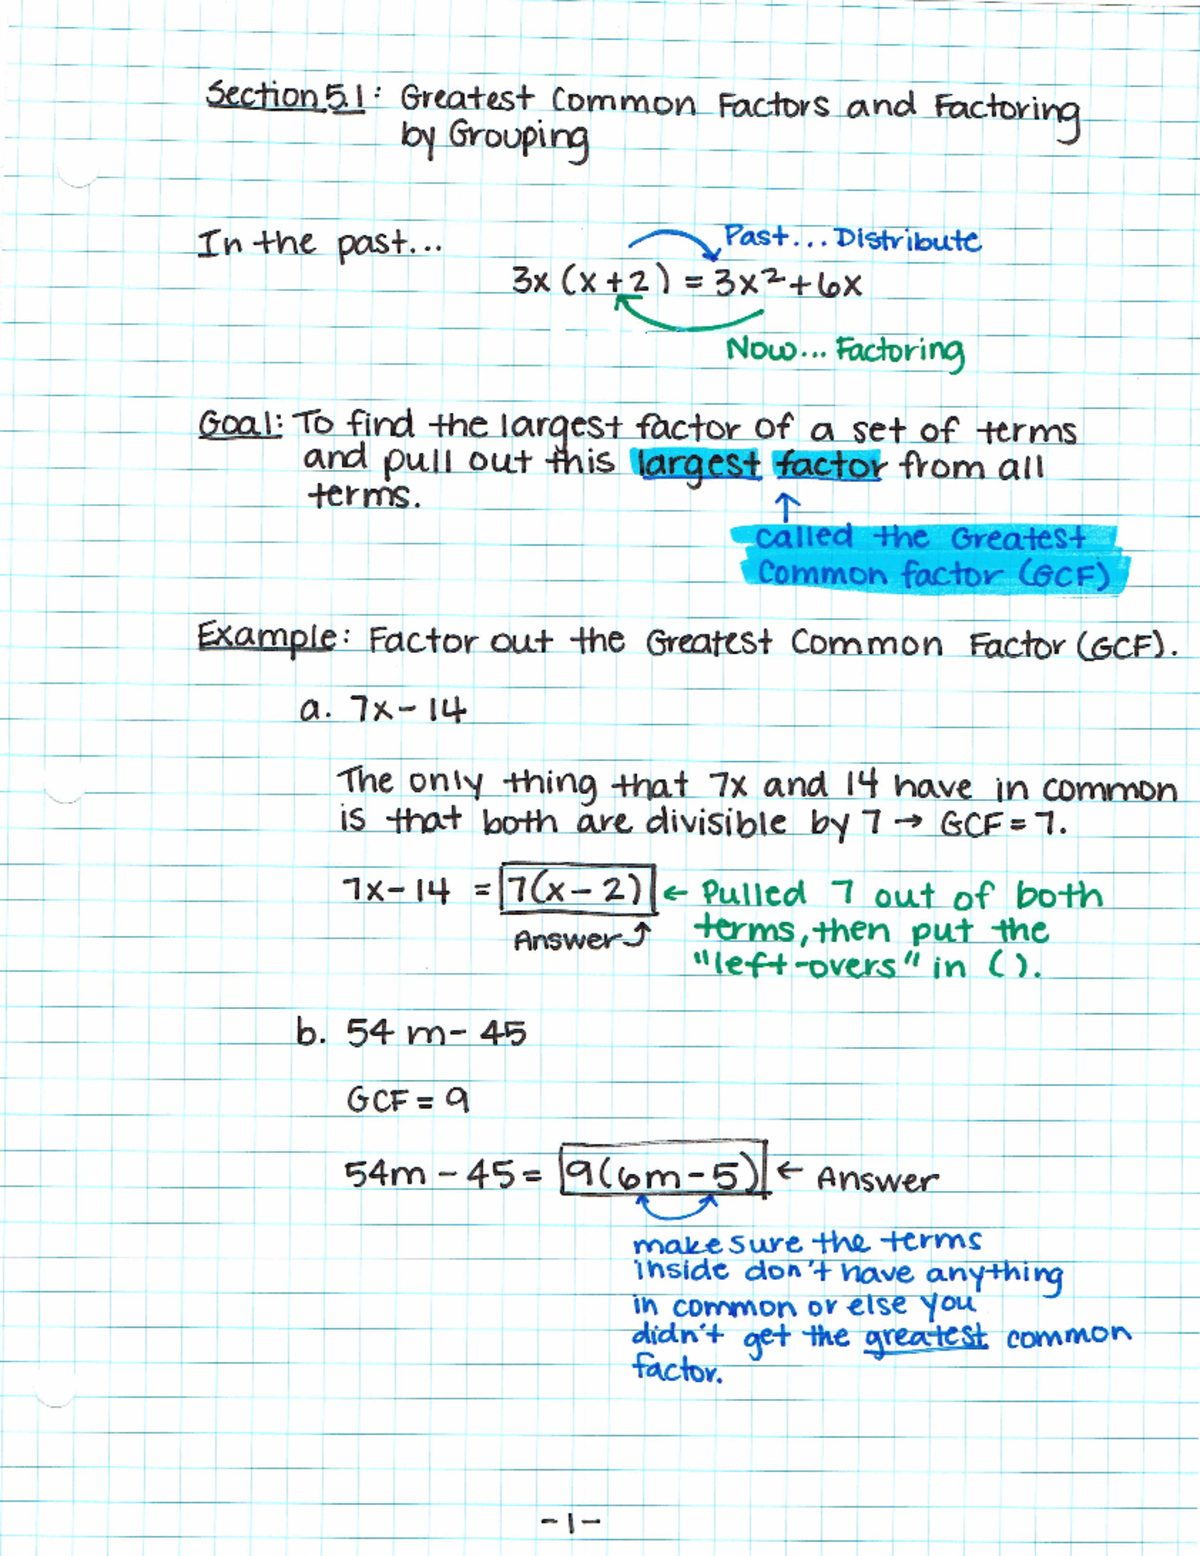 Section 5.1: Greatest Common Factors and Factoring
by Grouping
In the past...
Past... Distribute
3x (x+2) = 3x²+6x
Now... Factoring
Goal: To find the largest factor of a set of terms
and pull out this largest factor from all
terms.
↑
called the Greatest
Common factor (GCF)
Example: Factor out the Greatest Common Factor (GCF).
a. 7x-14
The only thing that 7x and 14 have in common
is that both are divisible by 7 → GCF = 7.
7x-14 = 7(x-2) ← Pulled 7 out of both
Answer ⤴ terms, then put the
"left-overs" in ( ).
b. 54 m- 45
GCF = 9
54m - 45 = 9(6m-5) ← Answer
make sure the terms
inside don't have anything
in common or else you
didn't get the greatest common
factor.
-1-